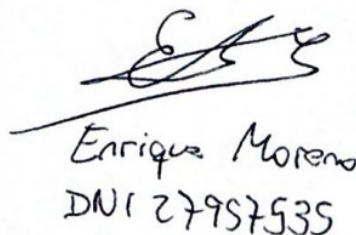 Enrique Moreno
DNI 27957535